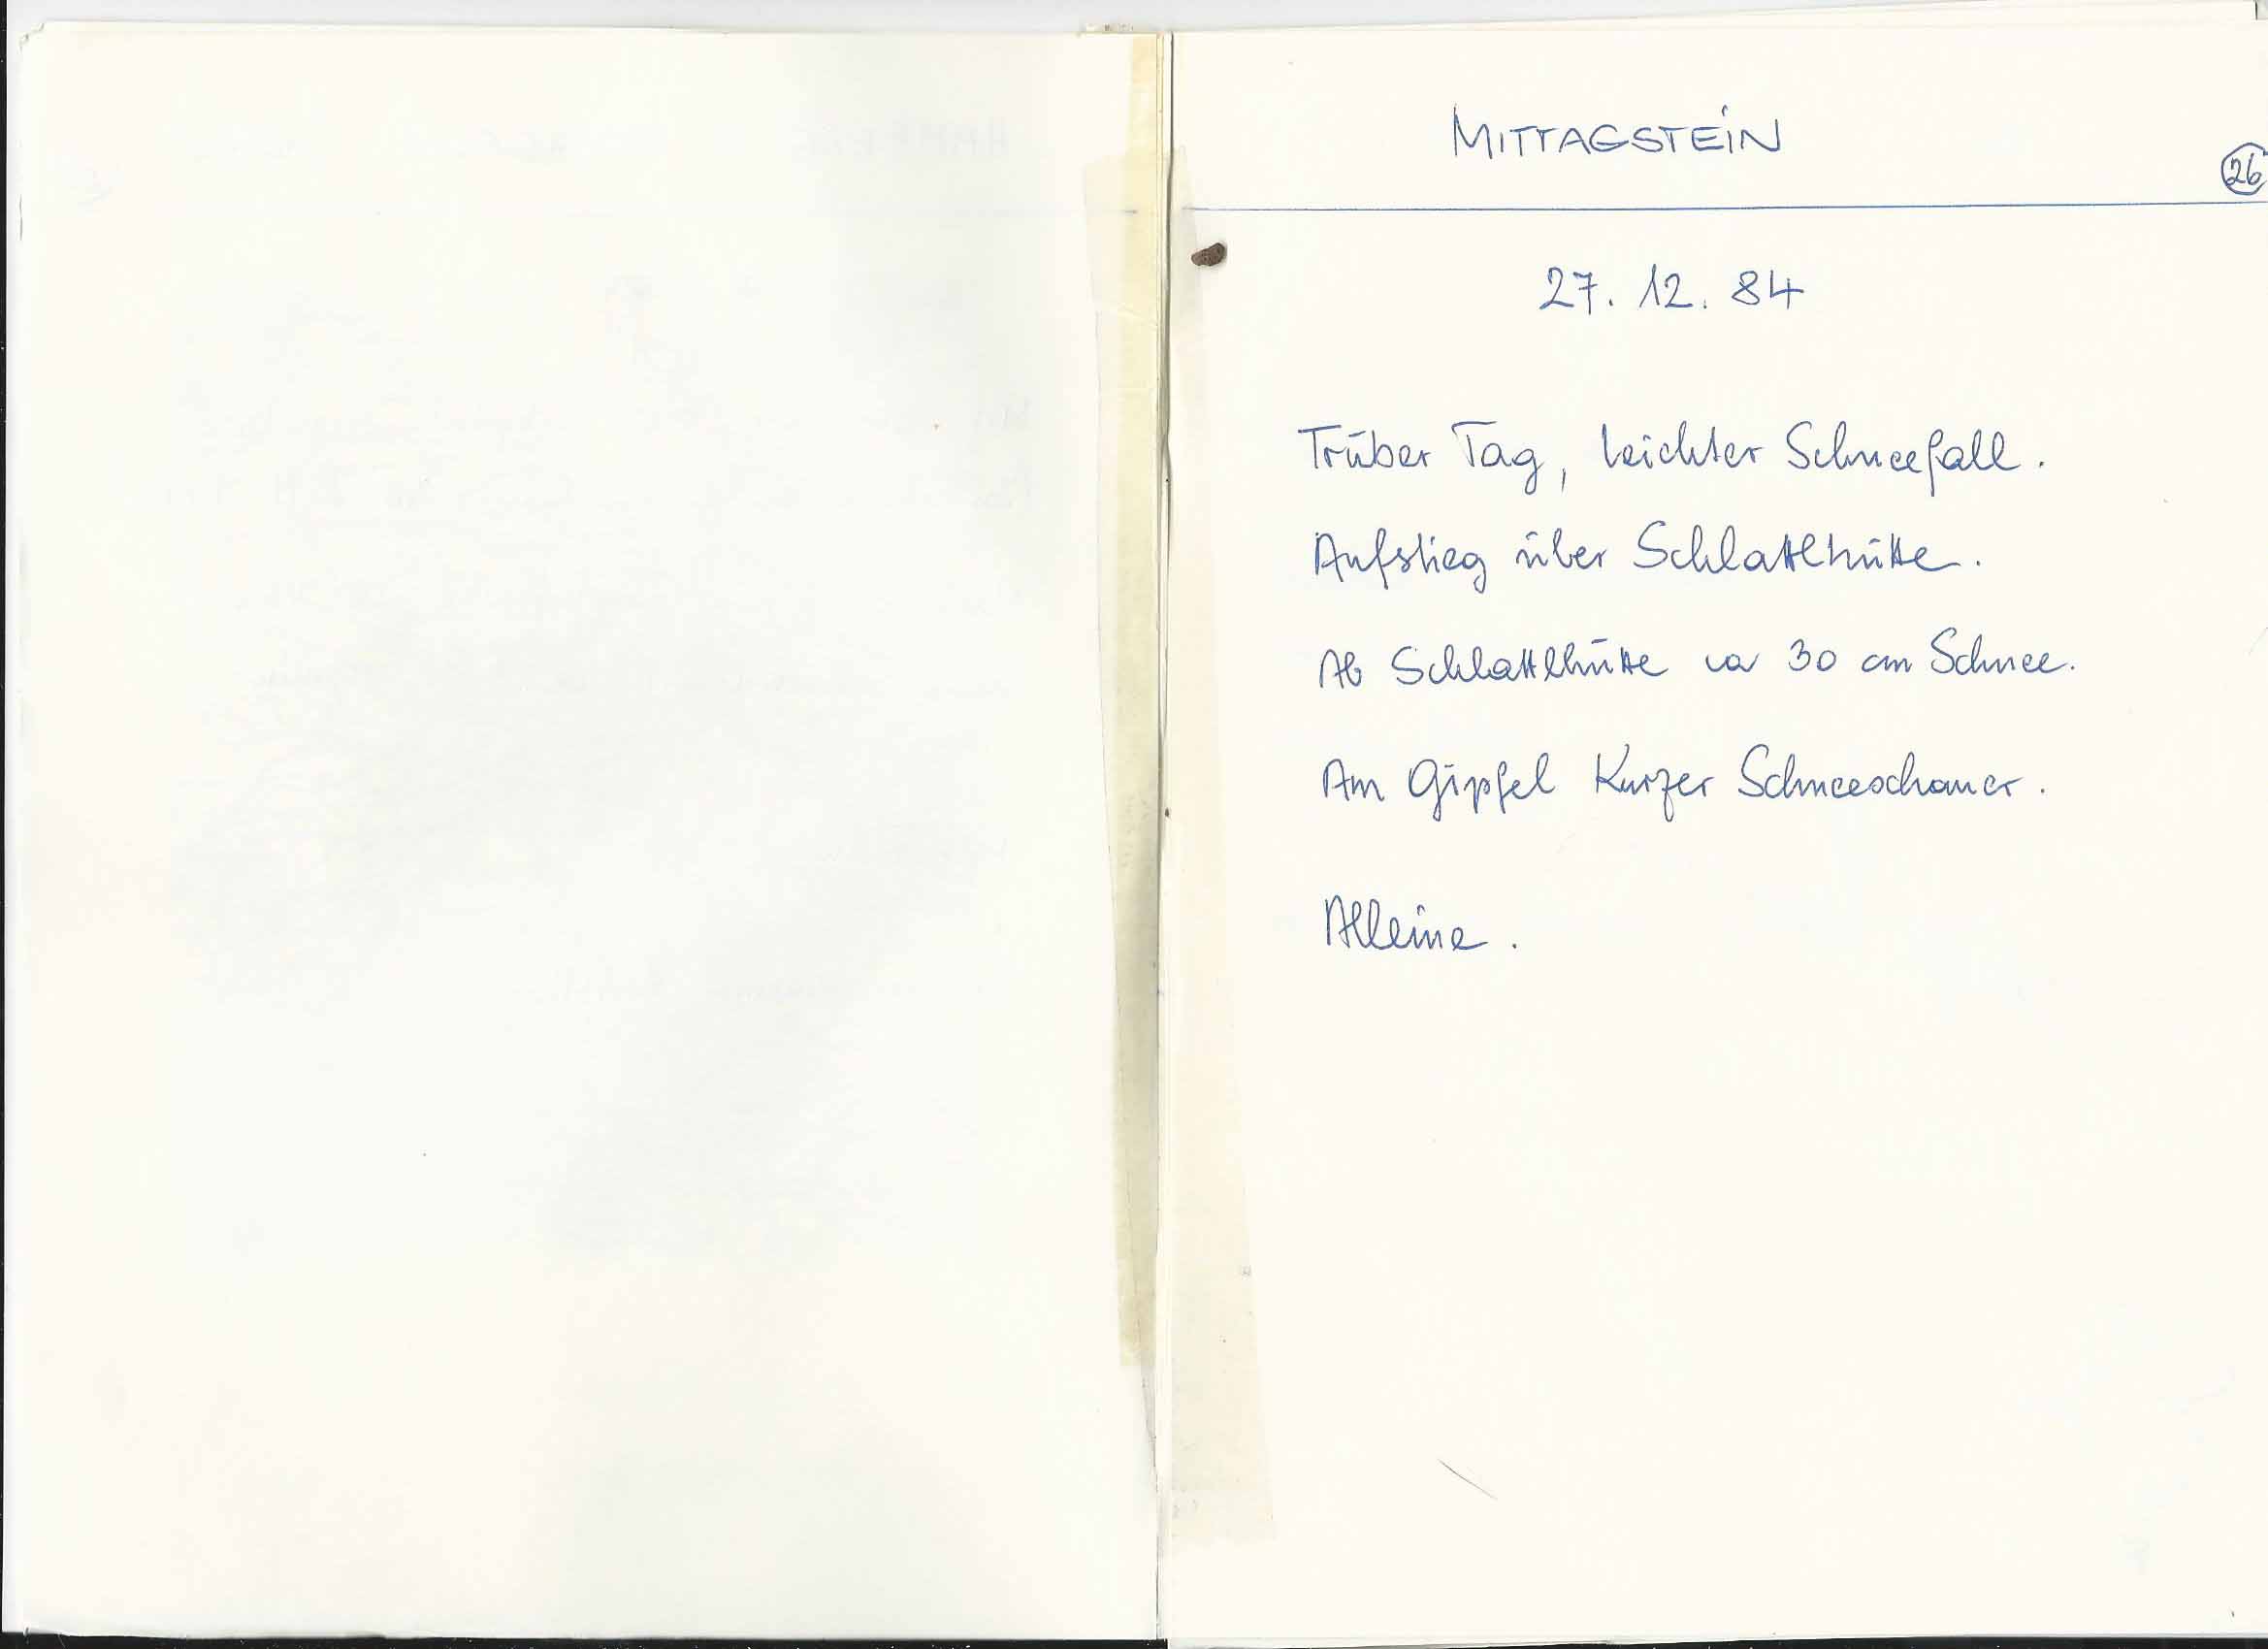 MITTAGSTEIN
26
27. 12. 84
Trüber Tag, leichter Schneefall.
Aufstieg über Schlattlhütte.
Ab Schlattlhütte ca 30 cm Schnee.
Am Gipfel Kurzer Schneeschauer.
Alleine.